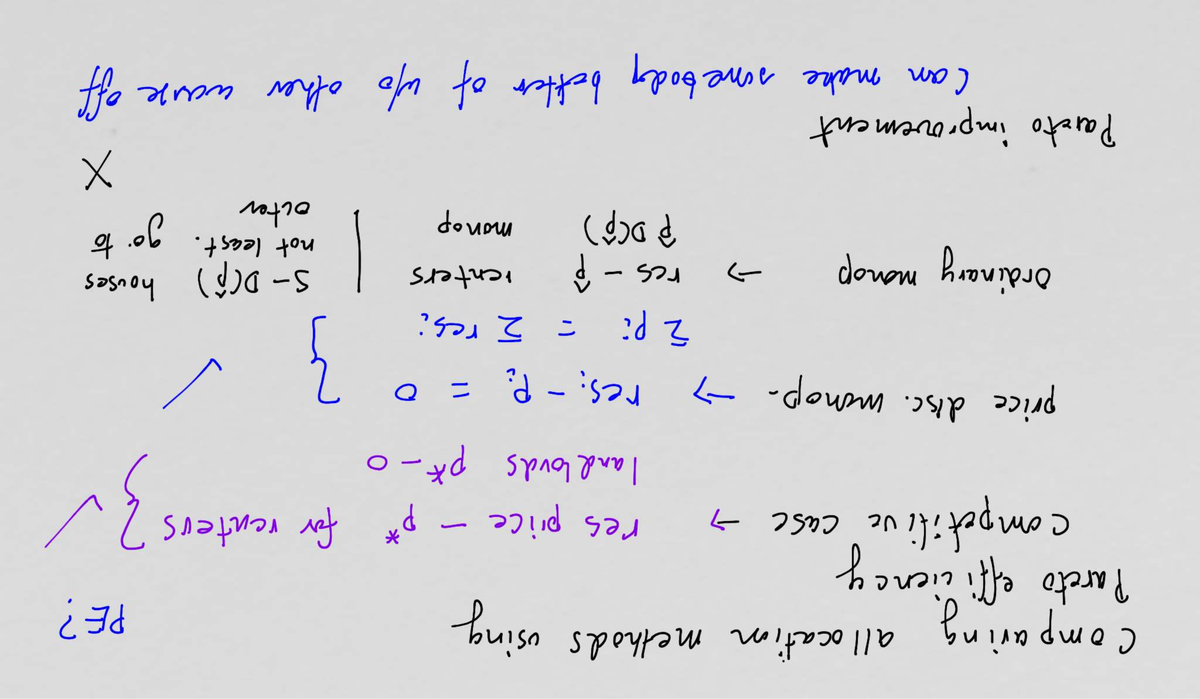 Comparing allocation methods using
Pareto efficiency
PE?
competitive case → res price - p* for renters }
landlords p* - 0
price disc. monop. → resᵢ - Pᵢ = 0 }
Σ pᵢ = Σ resᵢ
ordinary monop → res - p̂ renters | S - D(p̂) houses
p̂ D(p̂) monop | not least. go to
octer
X
Pareto improvement
Can make somebody better of w/o other worse off